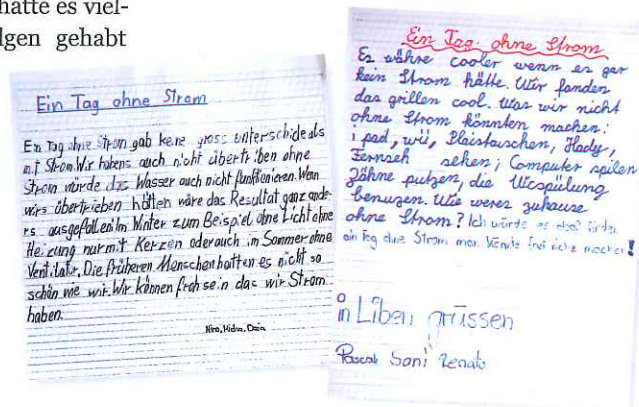 hätte es viel-
lgen gehabt
Ein Tag ohne Strom
Ein Tag ohne Strom gab keine gross unterschide als
mit Strom. Wir habens auch nicht übertriben ohne
Strom würde das Wasser auch nicht funktionieren. Wen
wirs übertrieben hätten wäre das Resultat ganz ande-
rs ausgefallen im Winter zum Beispiel ohne Licht ohne
Heizung nur mit Kerzen oder auch im Sommer ohne
Ventilator, Die früheren Menschen hatten es nicht so
schön wie wir. Wir können froh sein das wir Strom
haben.
Nino,
Ein Tag ohne Strom
Es währe cooler wenn es gar
kein Strom hätte. Wir fanden
das grillen cool. Was wir nicht
ohne Strom könnten machen:
i pad, wii, Blaistauschen, Hady,
Fernseh sehen, Computer spilen
Zähne putzen, die Wcspülung
benuzen. Wie weres zuhause
ohne Strom? Ich würde es
ein Tag ohne Strom man könnte machen!
in Liben grüssen
Pascal Soni Renato